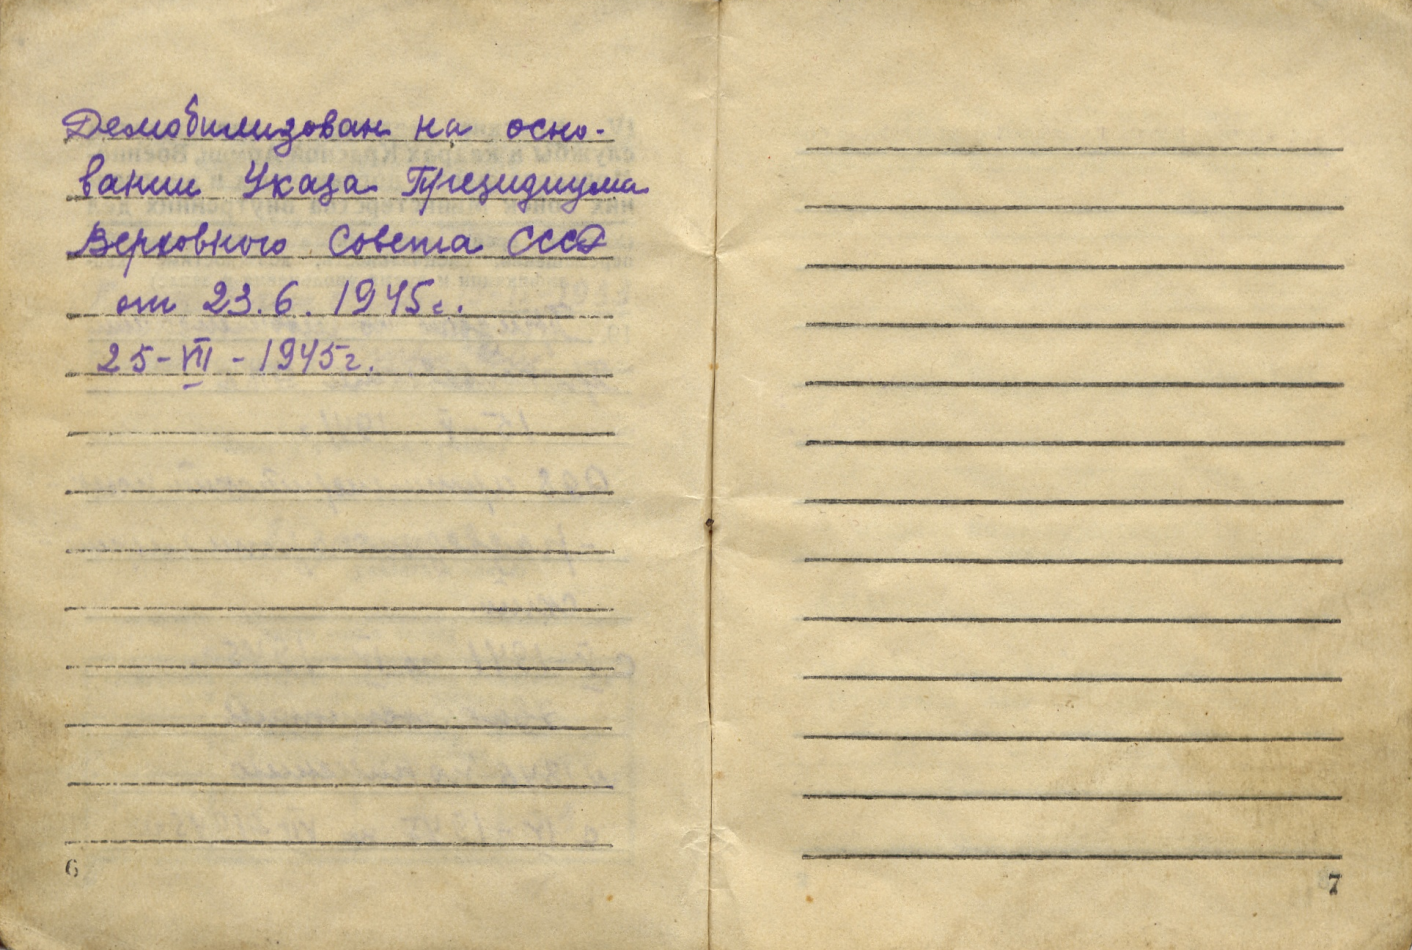 Демобилизован на осно-
вании Указа Президиума
Верховного Совета СССР
от 23.6. 1945г.
25-VII-1945г.
6
7